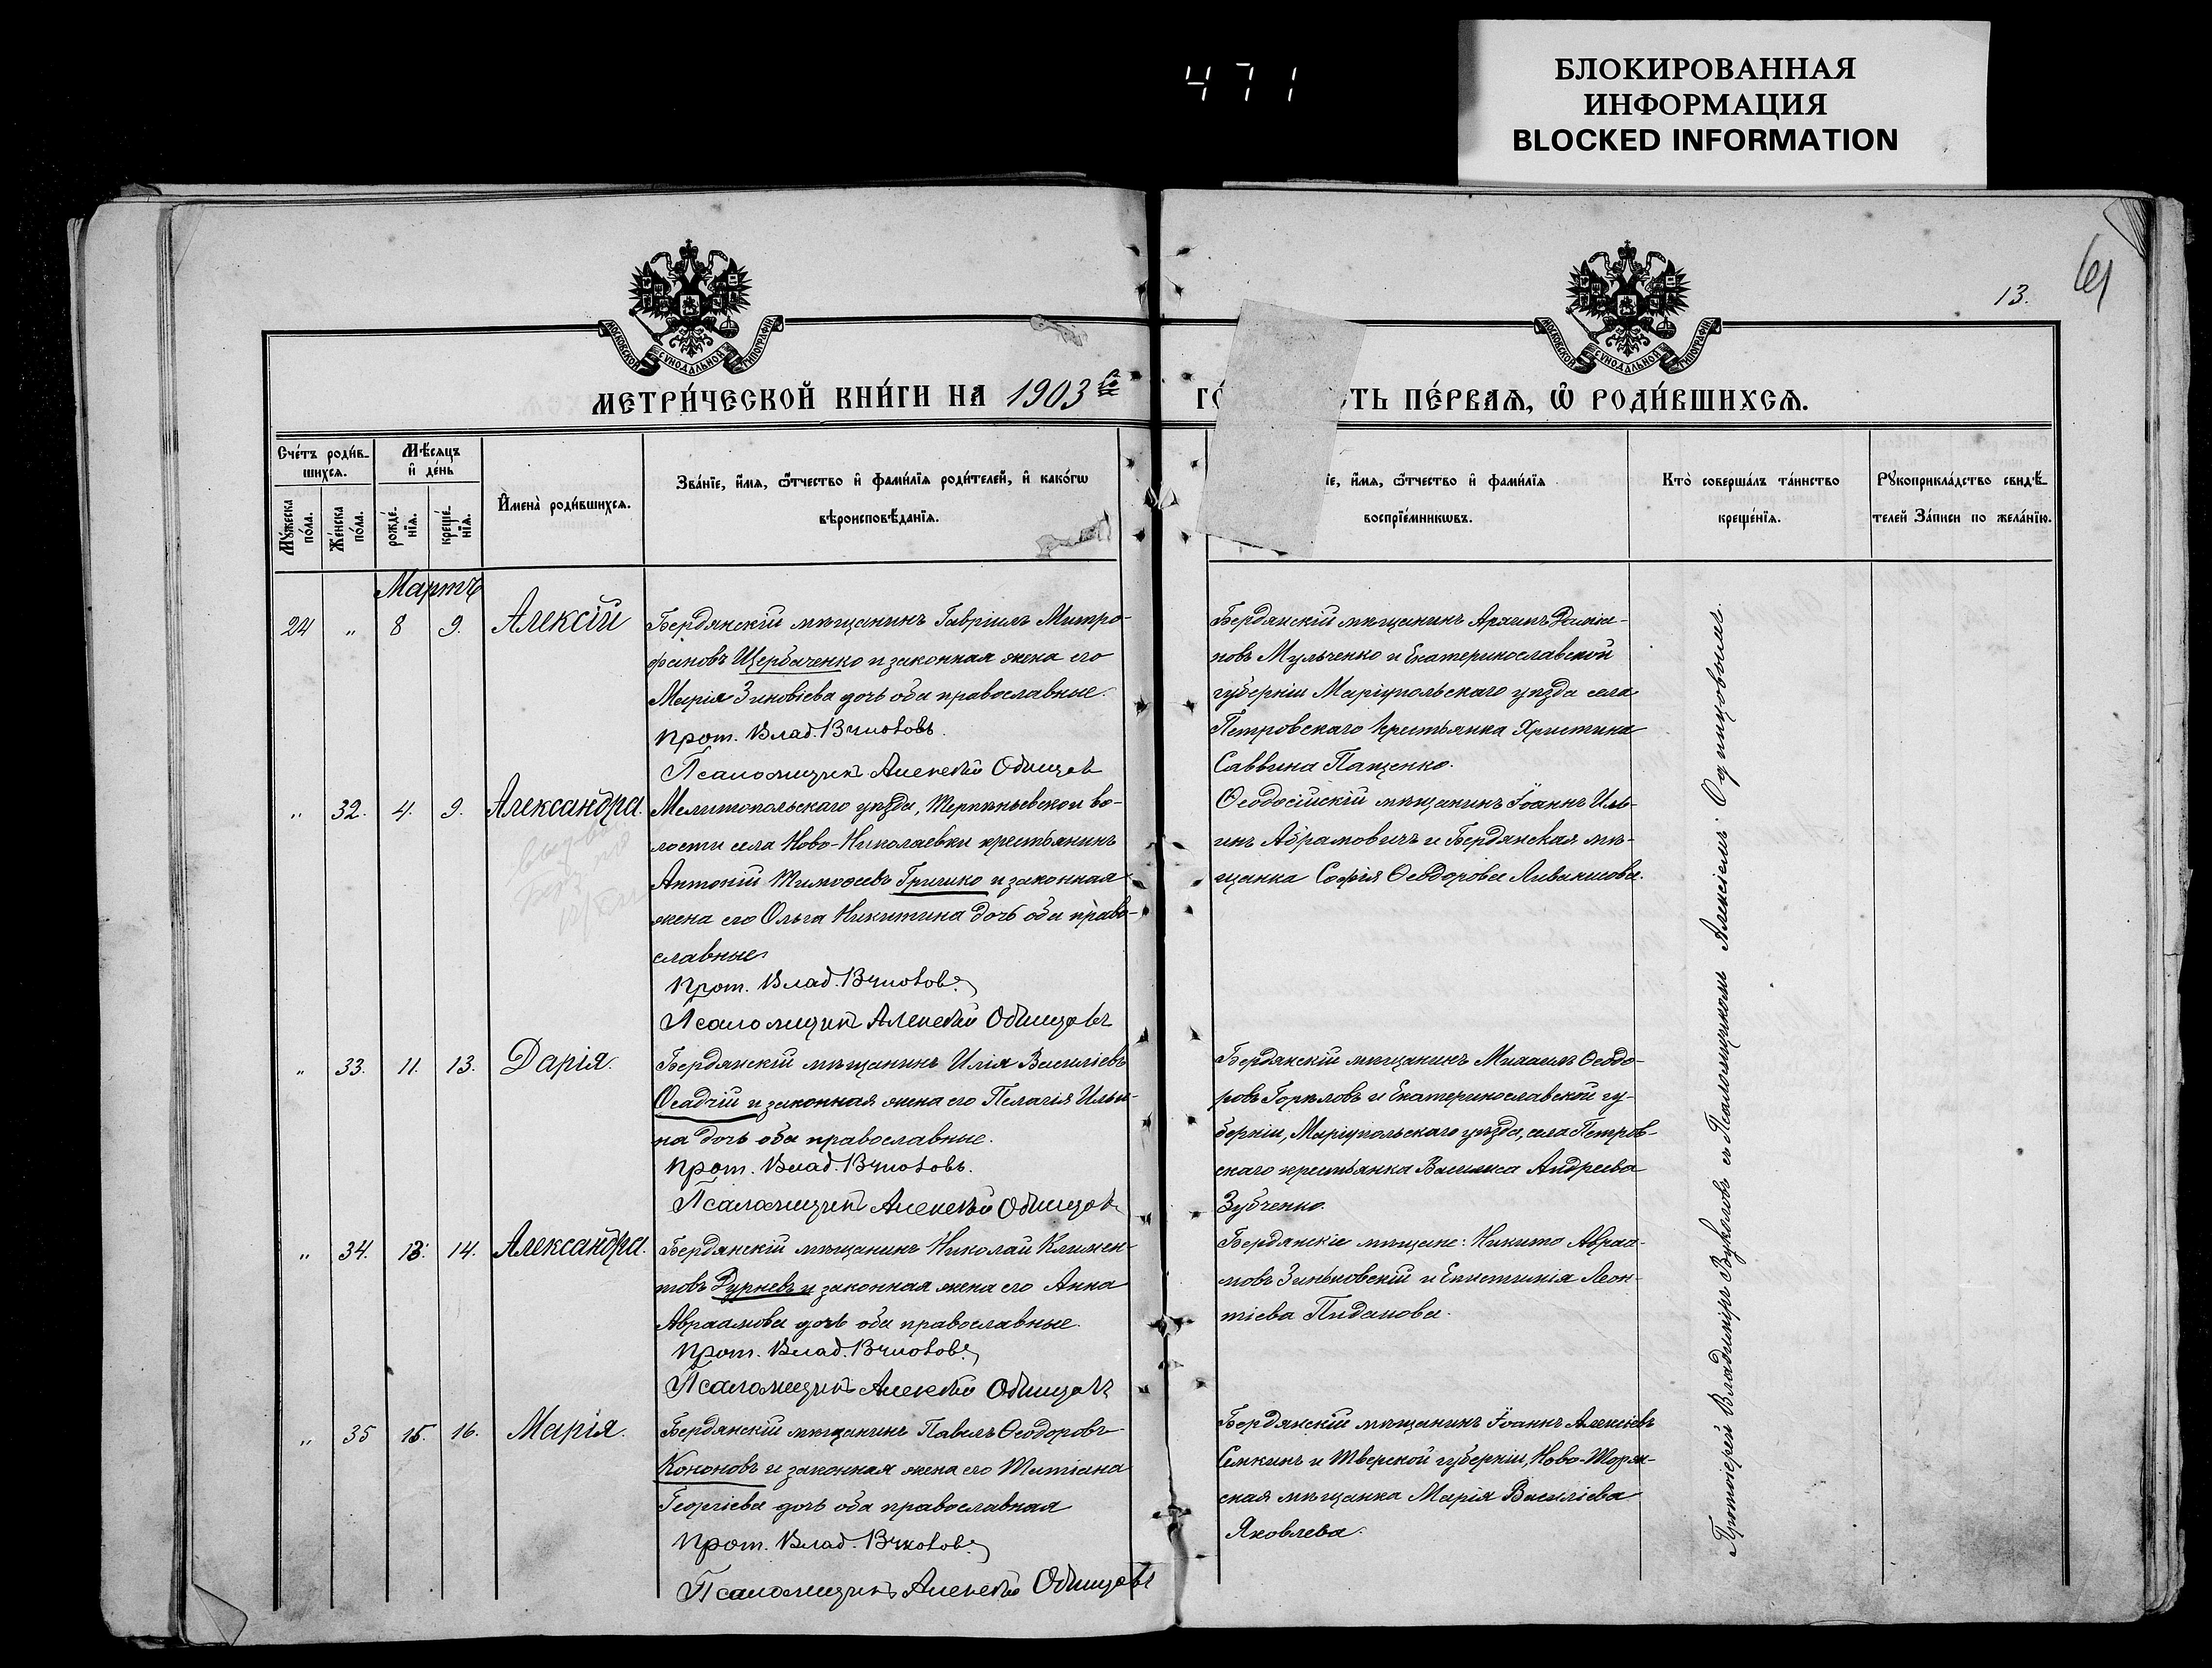 471
БЛОКИРОВАННАЯ
ИНФОРМАЦИЯ
BLOCKED INFORMATION
13.
61
МОСКОВСКОЙ СУНОДАЛЬНОЙ ТИПОГРАФІИ
МОСКОВСКОЙ СУНОДАЛЬНОЙ ТИПОГРАФІИ
МЕТРИ́ЧЕСКОЙ КНИ́ГИ НА 1903 й
ГО ТЬ ПЕ́РВАѦ, Ѿ РОДИ́ВШИХСѦ.
Сче́тъ роди́в-
шихсѧ.
Мѣ́сяцъ
и҆ де́нь
Мꙋ́жеска по́ла.
Же́нска по́ла.
рожде́нїѧ.
креще́нїѧ.
И҆мена̀ роди́вшихсѧ.
Зва́нїе, и҆́мѧ, ѻ҆́тчество и҆ фами́лїѧ роди́телей, и҆ како́гѡ
вѣроисповѣ́данїѧ.
їе, и҆́мѧ, ѻ҆́тчество и҆ фами́лїѧ
воспрїе́мникѡвъ.
Кто̀ соверша́лъ та́инство
креще́нїѧ.
Рꙋкоприкла́дство свидѣ́-
телей За́писи по жела́нїю.
Мартъ
24 " 8 9. Алексій
Бердянскій мѣщанинъ Гавріилъ Митро-
фановъ Щербаченко и законная жена его
Марія Зиновіева дочь оба православные.
Прот. Влад. Вуколовъ.
Псаломщикъ Алексѣй Одинцовъ
Бердянскій мѣщанинъ Даміа-
новъ Мульченко и Екатеринославской
губерніи Маріупольскаго уѣзда села
Петровскаго крестьянка Христина
Саввина Пащенко.
" 32. 4. 9. Александра.
Мелитопольскаго уѣзда, Терпѣньевской во-
лости села Ново-Николаевки крестьянинъ
Антоній Тимоѳеевъ Гричко и законная
жена его Ольга Никитина дочь оба право-
славные.
Прот. Влад. Вуколовъ.
Псаломщикъ Алексѣй Одинцовъ
Ѳеодосійскій мѣщанинъ Іоаннъ Иль-
инъ Абрамовичъ и Бердянская мѣ-
щанка Софія Ѳеодорова
" 33. 11. 13. Дарія.
Бердянскій мѣщанинъ Илія Василіевъ
Осадчій и законная жена его Пелагія Ильи-
на дочь оба православные.
Прот. Влад. Вуколовъ.
Псаломщикъ Алексѣй Одинцовъ
Бердянскій мѣщанинъ Михаилъ Ѳеодо-
ровъ Горѣловъ и Екатеринославской гу-
берніи, Маріупольскаго уѣзда, села Петров-
скаго крестьянка Васса Андреева
Зубченко.
" 34. 13. 14. Александра.
Бердянскій мѣщанинъ Николай Климен-
товъ Дурневъ и законная жена его Анна
Авраамова дочь оба православные.
Прот. Влад. Вуколовъ.
Псаломщикъ Алексѣй Одинцовъ
Бердянскіе мѣщане: Никита Авраа-
мовъ Зиньковскій и Епистимія Леон-
тіева Пиданова.
" 35 15. 16. Марія.
Бердянскій мѣщанинъ Павелъ Ѳеодоровъ
Кононовъ и законная жена его Татіана
Георгіева дочь оба православная
Прот. Влад. Вуколовъ.
Псаломщикъ Алексѣй Одинцовъ
Бердянскій мѣщанинъ Іоаннъ Алексіевъ
Семкинъ и Тверской губерніи, Ново-Торж-
ская мѣщанка Марія Василіева
Яковлева.
Протоіерей Владиміръ Вуколовъ съ Псаломщикомъ Алексіемъ Одинцовымъ.